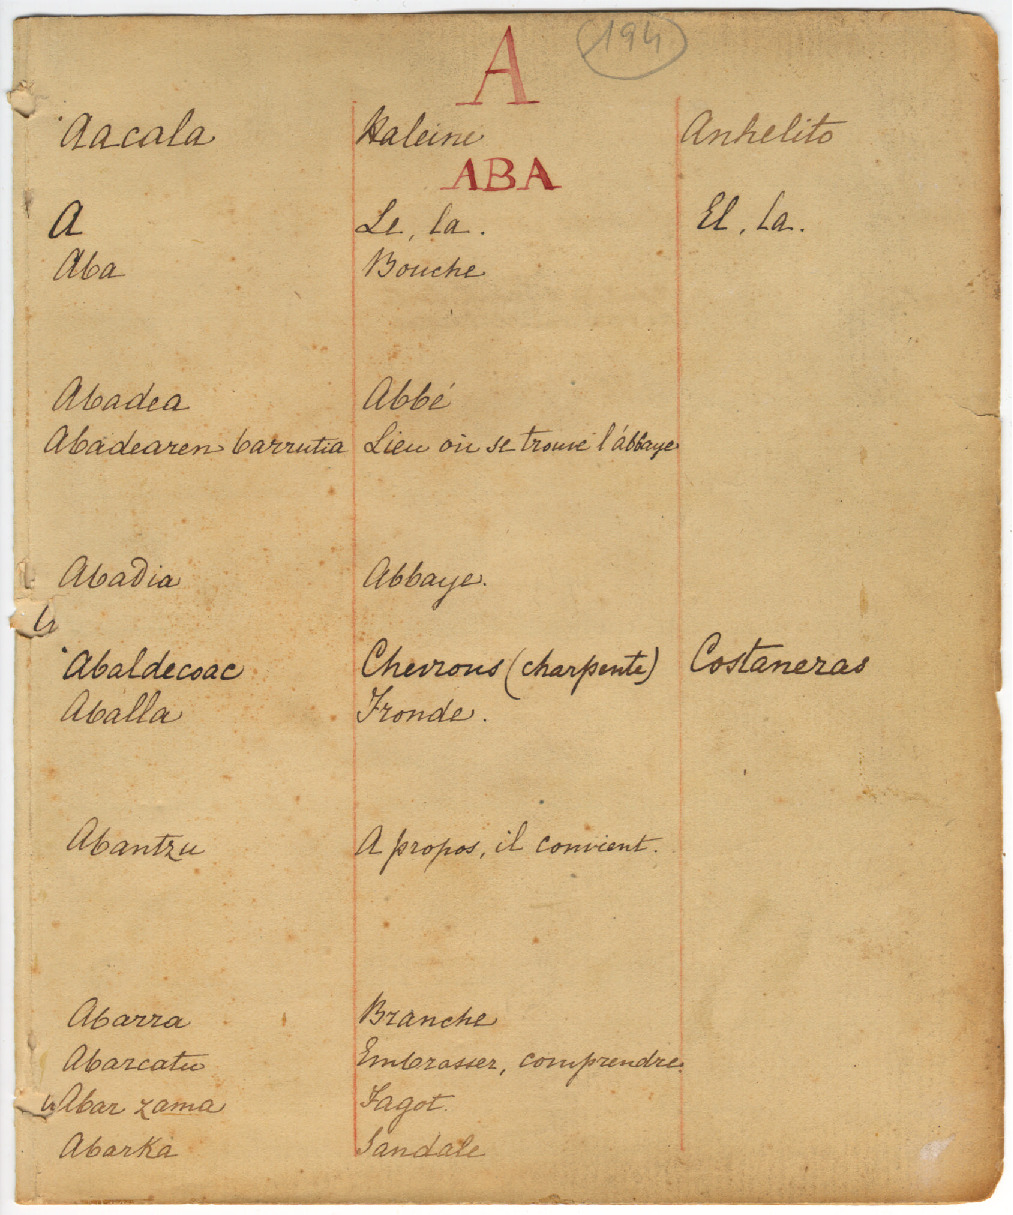 A 194
Aacala Haleine Anhelito
ABA
A Le, la. El, la.
Aba Bouche
Abadea Abbé
Abadearen barrutia Lieu où se trouve l'abbaye
Abadia Abbaye.
Abaldecoac Chevrons (charpente) Costaneras
Aballa Fronde.
Abantzu A propos, il convient.
Abarra Branche
Abarcatu Embrasser, comprendre.
Abar zama Fagot.
Abarka Sandale